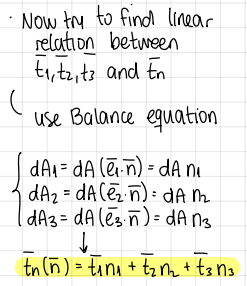 · Now try to find linear
relation between
t̄₁, t̄₂, t̄₃ and t̄n
( use Balance equation
dA₁ = dA (ē₁·n̄) = dA n₁
dA₂ = dA (ē₂·n̄) = dA n₂
dA₃ = dA (ē₃·n̄) = dA n₃
↓
t̄n (n̄) = t̄₁n₁ + t̄₂n₂ + t̄₃n₃